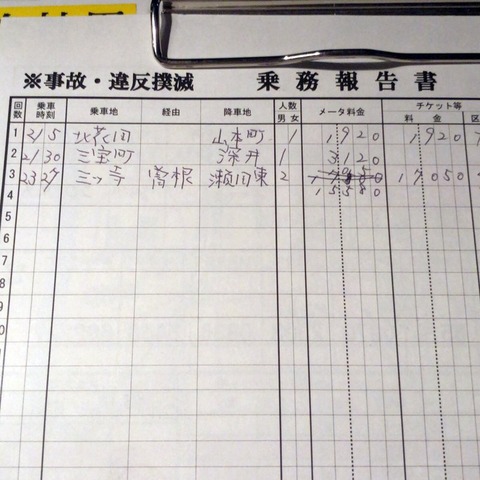 ※事故・違反撲滅 乗務報告書
回数 乗車時刻 乗車地 経由 降車地 人数 男 女 メータ料金 チケット等 料金 区
1 21 5 北花田 山本町 1 1920 1920
2 21 30 三宝町 深井 1 3120
3 23 27 三ッ寺 曽根 瀬田東 2 17050
4 15580
5
6
7
8
9